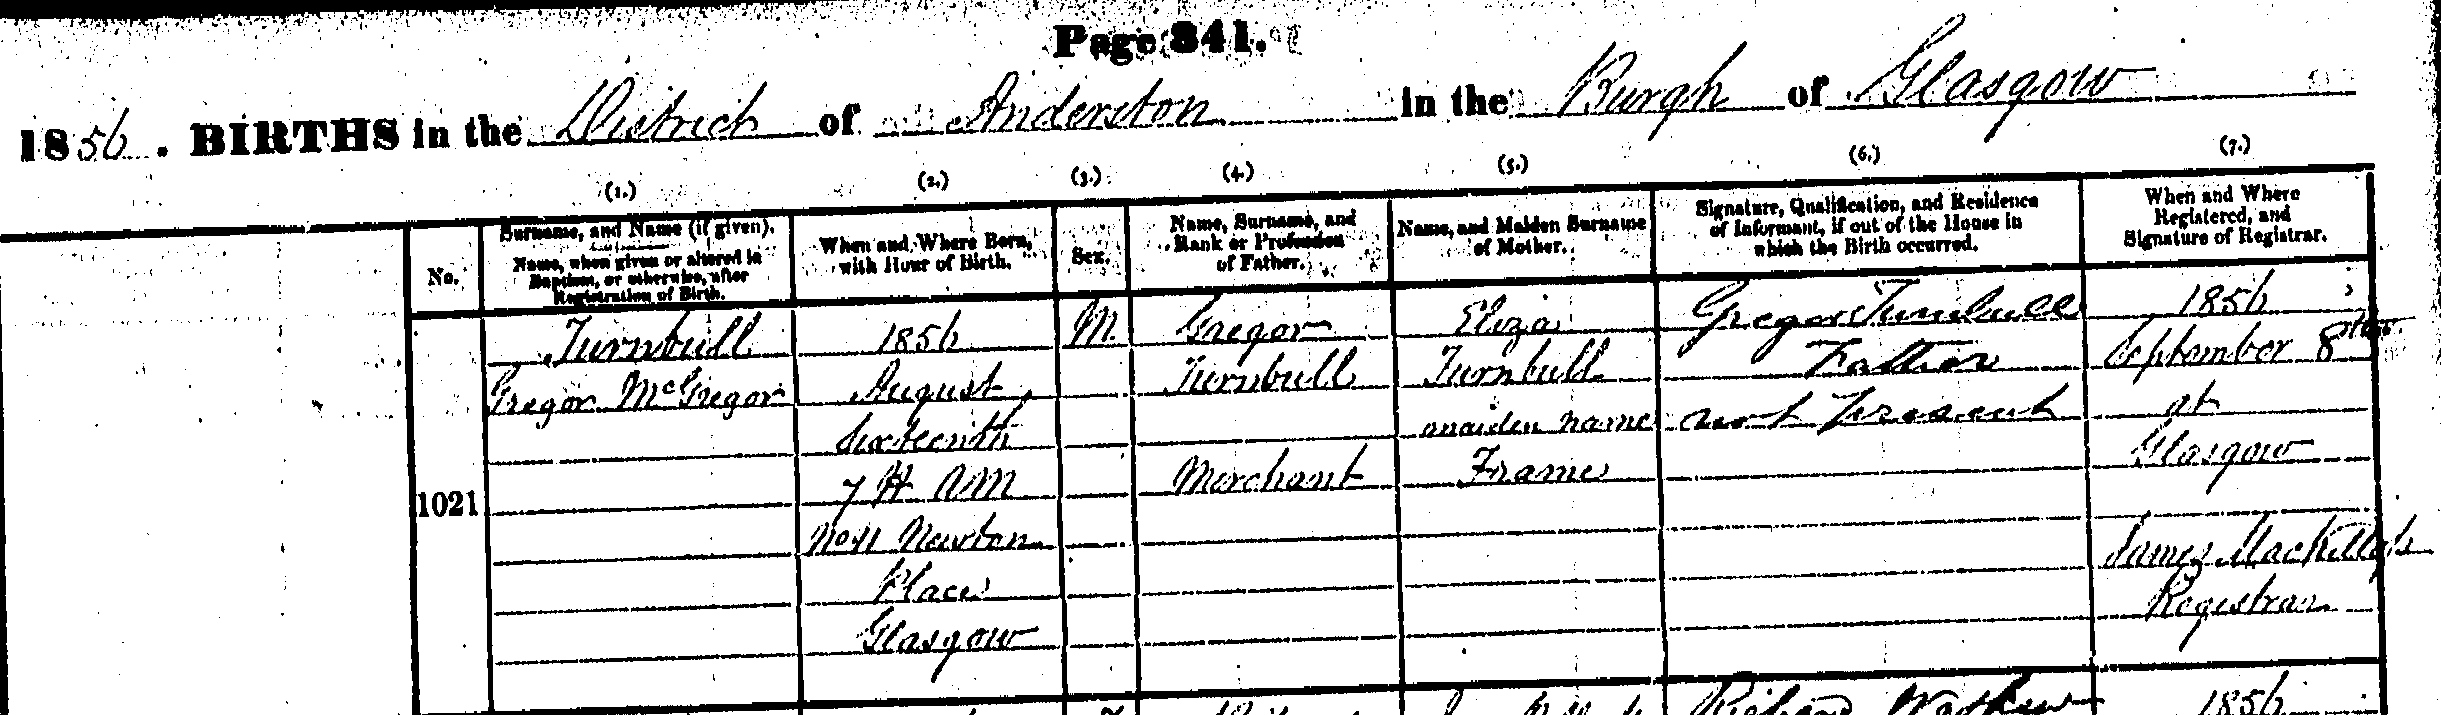 Page 341.
1856. BIRTHS in the District of Anderston in the Burgh of Glasgow
(1.) (2.) (3.) (4.) (5.) (6.) (7.)
No.
Surname, and Name (if given).
Name, when given or altered in
Baptism, or otherwise, after
Registration of Birth.
When and Where Born,
with Hour of Birth.
Sex.
Name, Surname, and
Rank or Profession
of Father.
Name, and Maiden Surname
of Mother.
Signature, Qualification, and Residence
of Informant, if out of the House in
which the Birth occurred.
When and Where
Registered, and
Signature of Registrar.
1021
Turnbull
Gregor McGregor
1856
August
Sixteenth
7 H AM
No 11 Newton
Place
Glasgow
M
Gregor
Turnbull
Merchant
Eliza
Turnbull
maiden name
Frame
Gregor Turnbull
Father
not present
1856
September 8th
at
Glasgow
James
Registrar
Richard
1856